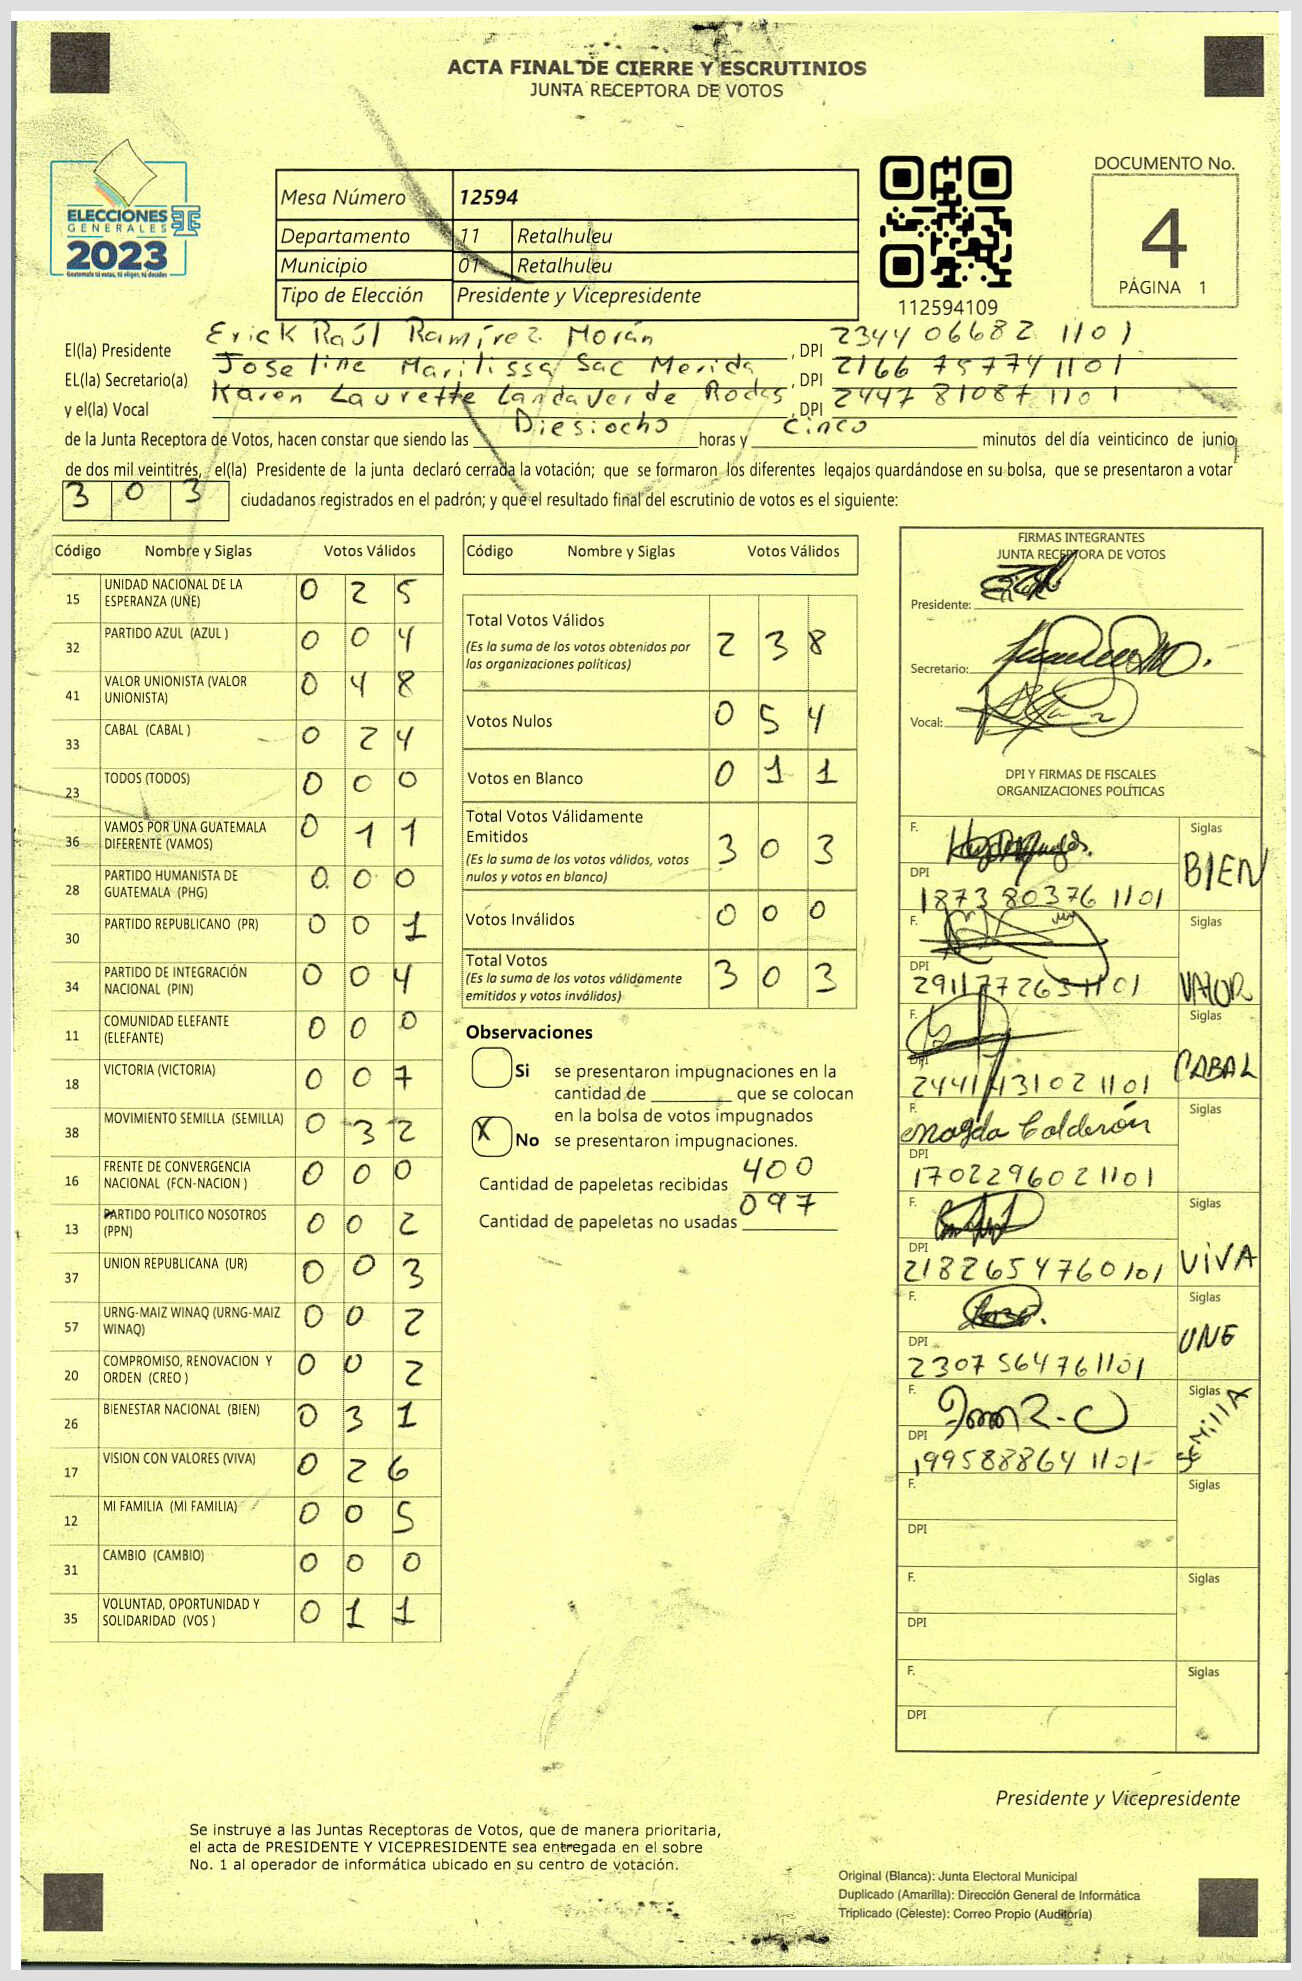 ACTA FINAL DE CIERRE Y ESCRUTINIOS
JUNTA RECEPTORA DE VOTOS
ELECCIONES
GENERALES
2023
Guatemala tú votas, tú eliges, tú decides
Mesa Número 12594
Departamento 11 Retalhuleu
Municipio 01 Retalhuleu
Tipo de Elección Presidente y Vicepresidente
112594109
DOCUMENTO No.
4
PÁGINA 1
El(la) Presidente Erick Raúl Ramírez Morán, DPI 2344 06682 1101
EL(la) Secretario(a) Joseline Marilissa Sac Merida, DPI 2166 75774 1101
y el(la) Vocal Karen Laurette Landaverde Rodas, DPI 2447 81087 1101
de la Junta Receptora de Votos, hacen constar que siendo las Diesiocho horas y cinco minutos del día veinticinco de junio
de dos mil veintitrés, el(la) Presidente de la junta declaró cerrada la votación; que se formaron los diferentes legajos quardándose en su bolsa, que se presentaron a votar
303 ciudadanos registrados en el padrón; y que el resultado final del escrutinio de votos es el siguiente:
Código Nombre y Siglas Votos Válidos
15 UNIDAD NACIONAL DE LA ESPERANZA (UNE) 0 2 5
32 PARTIDO AZUL (AZUL ) 0 0 4
41 VALOR UNIONISTA (VALOR UNIONISTA) 0 4 8
33 CABAL (CABAL ) 0 2 4
23 TODOS (TODOS) 0 0 0
36 VAMOS POR UNA GUATEMALA DIFERENTE (VAMOS) 0 1 1
28 PARTIDO HUMANISTA DE GUATEMALA (PHG) 0 0 0
30 PARTIDO REPUBLICANO (PR) 0 0 1
34 PARTIDO DE INTEGRACIÓN NACIONAL (PIN) 0 0 4
11 COMUNIDAD ELEFANTE (ELEFANTE) 0 0 0
18 VICTORIA (VICTORIA) 0 0 7
38 MOVIMIENTO SEMILLA (SEMILLA) 0 3 2
16 FRENTE DE CONVERGENCIA NACIONAL (FCN-NACION ) 0 0 0
13 PARTIDO POLITICO NOSOTROS (PPN) 0 0 2
37 UNION REPUBLICANA (UR) 0 0 3
57 URNG-MAIZ WINAQ (URNG-MAIZ WINAQ) 0 0 2
20 COMPROMISO, RENOVACION Y ORDEN (CREO ) 0 0 2
26 BIENESTAR NACIONAL (BIEN) 0 3 1
17 VISION CON VALORES (VIVA) 0 2 6
12 MI FAMILIA (MI FAMILIA) 0 0 5
31 CAMBIO (CAMBIO) 0 0 0
35 VOLUNTAD, OPORTUNIDAD Y SOLIDARIDAD (VOS ) 0 1 1
Código Nombre y Siglas Votos Válidos
Total Votos Válidos 2 3 8
(Es la suma de los votos obtenidos por
las organizaciones políticas)
Votos Nulos 0 5 4
Votos en Blanco 0 1 1
Total Votos Válidamente
Emitidos 3 0 3
(Es la suma de los votos válidos, votos
nulos y votos en blanco)
Votos Inválidos 0 0 0
Total Votos 3 0 3
(Es la suma de los votos válidamente
emitidos y votos inválidos)
Observaciones
Si se presentaron impugnaciones en la
cantidad de ________ que se colocan
en la bolsa de votos impugnados
X No se presentaron impugnaciones.
Cantidad de papeletas recibidas 400
Cantidad de papeletas no usadas 097
FIRMAS INTEGRANTES
JUNTA RECEPTORA DE VOTOS
Presidente:
Secretario:
Vocal:
DPI Y FIRMAS DE FISCALES
ORGANIZACIONES POLÍTICAS
F. Siglas BIEN
DPI 1873 80376 1101
F. Siglas VALOR
DPI 2911772631101
F. Siglas CABAL
DPI 2441431021101
F. Magda Calderón Siglas
DPI 1702296021101
F. Siglas VIVA
DPI 2182654760101
F. Siglas UNE
DPI 2307564761101
F. Siglas SEMillA
DPI 1995888641101-
F. Siglas
DPI
F. Siglas
DPI
F. Siglas
DPI
Presidente y Vicepresidente
Se instruye a las Juntas Receptoras de Votos, que de manera prioritaria,
el acta de PRESIDENTE Y VICEPRESIDENTE sea entregada en el sobre
No. 1 al operador de informática ubicado en su centro de votación.
Original (Blanca): Junta Electoral Municipal
Duplicado (Amarilla): Dirección General de Informática
Triplicado (Celeste): Correo Propio (Auditoría)